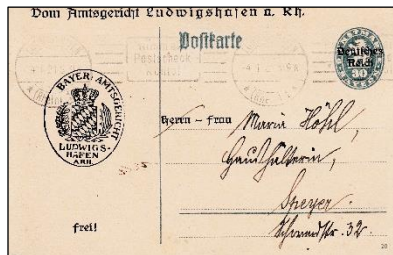 Vom Amtsgericht Ludwigshafen a. Rh.
Postkarte
Deutsches
Reich
30
Postscheck
BAYER. AMTSGERICHT
LUDWIGS-
HAFEN
A/RH.
Herrn – Frau
Maria Höhl,
Haushälterin,
Speyer.
Schwerdstr. 32.
frei!